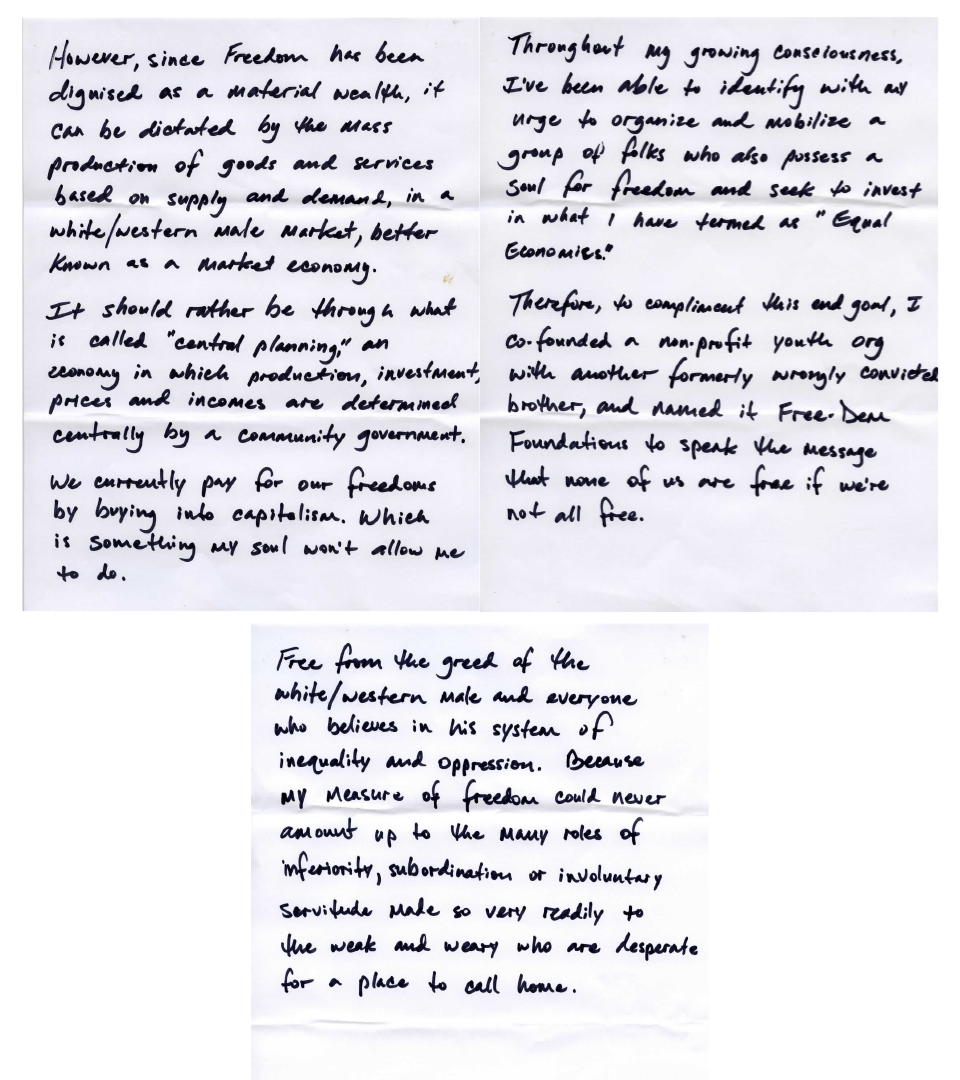 However, since Freedom has been
dignised as a material wealth, it
can be dictated by the mass
production of goods and services
based on supply and demand, in a
white/western male market, better
known as a market economy.
It should rather be through what
is called "central planning," an
economy in which production, investment,
prices and incomes are determined
centrally by a community government.
We currently pay for our freedoms
by buying into capitalism. Which
is something my soul won't allow me
to do.
Throughout my growing consciousness,
I've been able to identify with my
urge to organize and mobilize a
group of folks who also possess a
soul for freedom and seek to invest
in what I have termed as "Equal
Economics."
Therefore, to compliment this end goal, I
co-founded a non-profit youth org
with another formerly wrongly convicted
brother, and named it Free-Dem
Foundations to speak the message
that none of us are free if we're
not all free.
Free from the greed of the
white/western male and everyone
who believes in his system of
inequality and oppression. Because
my measure of freedom could never
amount up to the many roles of
inferiority, subordination or involuntary
servitude made so very readily to
the weak and weary who are desperate
for a place to call home.